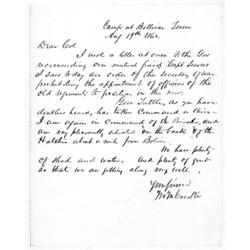 Camp at Bolivar Tenn
Aug 19th 1862
Dear Col
I send a letter at once to the Gov
recommending our mutual friend Capt
I saw to day an order of the Secretary of war
prohibiting the appointment of officers of the
old regiments to positions in the new.
Gen Tuttle, as you have
doubtless heard, has taken Command a
I am again in Command of the Brigade, and
am very pleasantly situated on the bank of the
Hatchie about a mile from Bolivar
We have plenty
of shade and water, and plenty of grub
so that we are getting along very well.
Yours